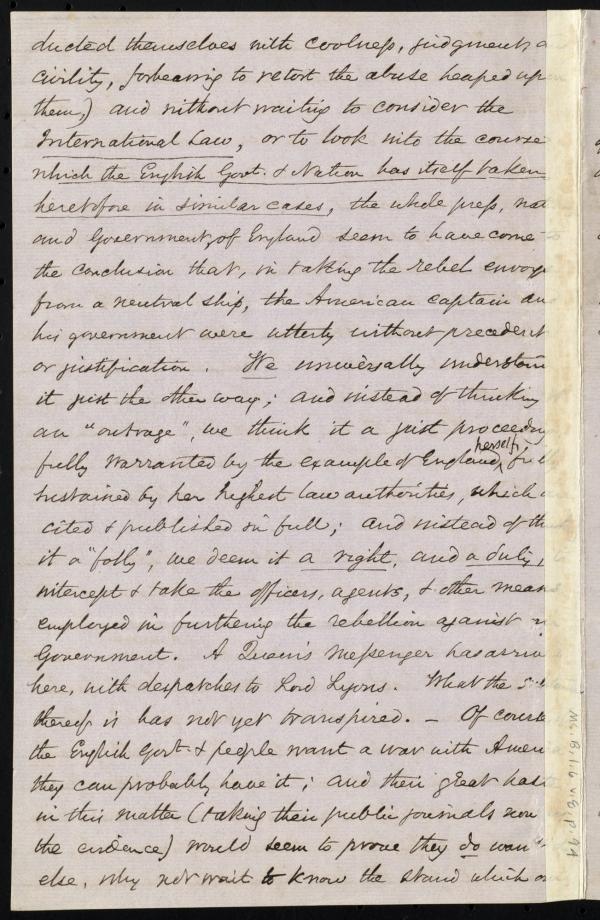 ducted themselves with coolness, judgment, a
civility, forbearing to retort the abuse heaped up
them,) and without waiting to consider the
International Law, or to look into the course
which the English Govt. & Nation has itself taken
heretofore in similar cases, the whole press, nat
and Government, of England seem to have come
the conclusion that, in taking the rebel envoys
from a neutral ship, the American captain an
his government were utterly without precedent
or justification. We universally understan
it just the other way; and instead of thinking
an "outrage", we think it a just proceeding
fully warranted by the example of England herself, fully
sustained by her highest law authorities, which a
cited & published in full; and instead of th
it a "folly", we deem it a right, and a duty,
intercept & take the officers, agents, & other means
employed in furthering the rebellion against
Government. A Queen's Messenger has arriv
here, with despatches to Lord Lyons. What the
thereof is has not yet transpired. — Of course
the English Govt. & people want a war with Ameri
they can probably have it; and their great hast
in this matter (taking their public journals now
the evidence) would seem to prove they do wan
else, why not wait to know the stand which o
Ms. B. 1.6 v. 8, p. 94